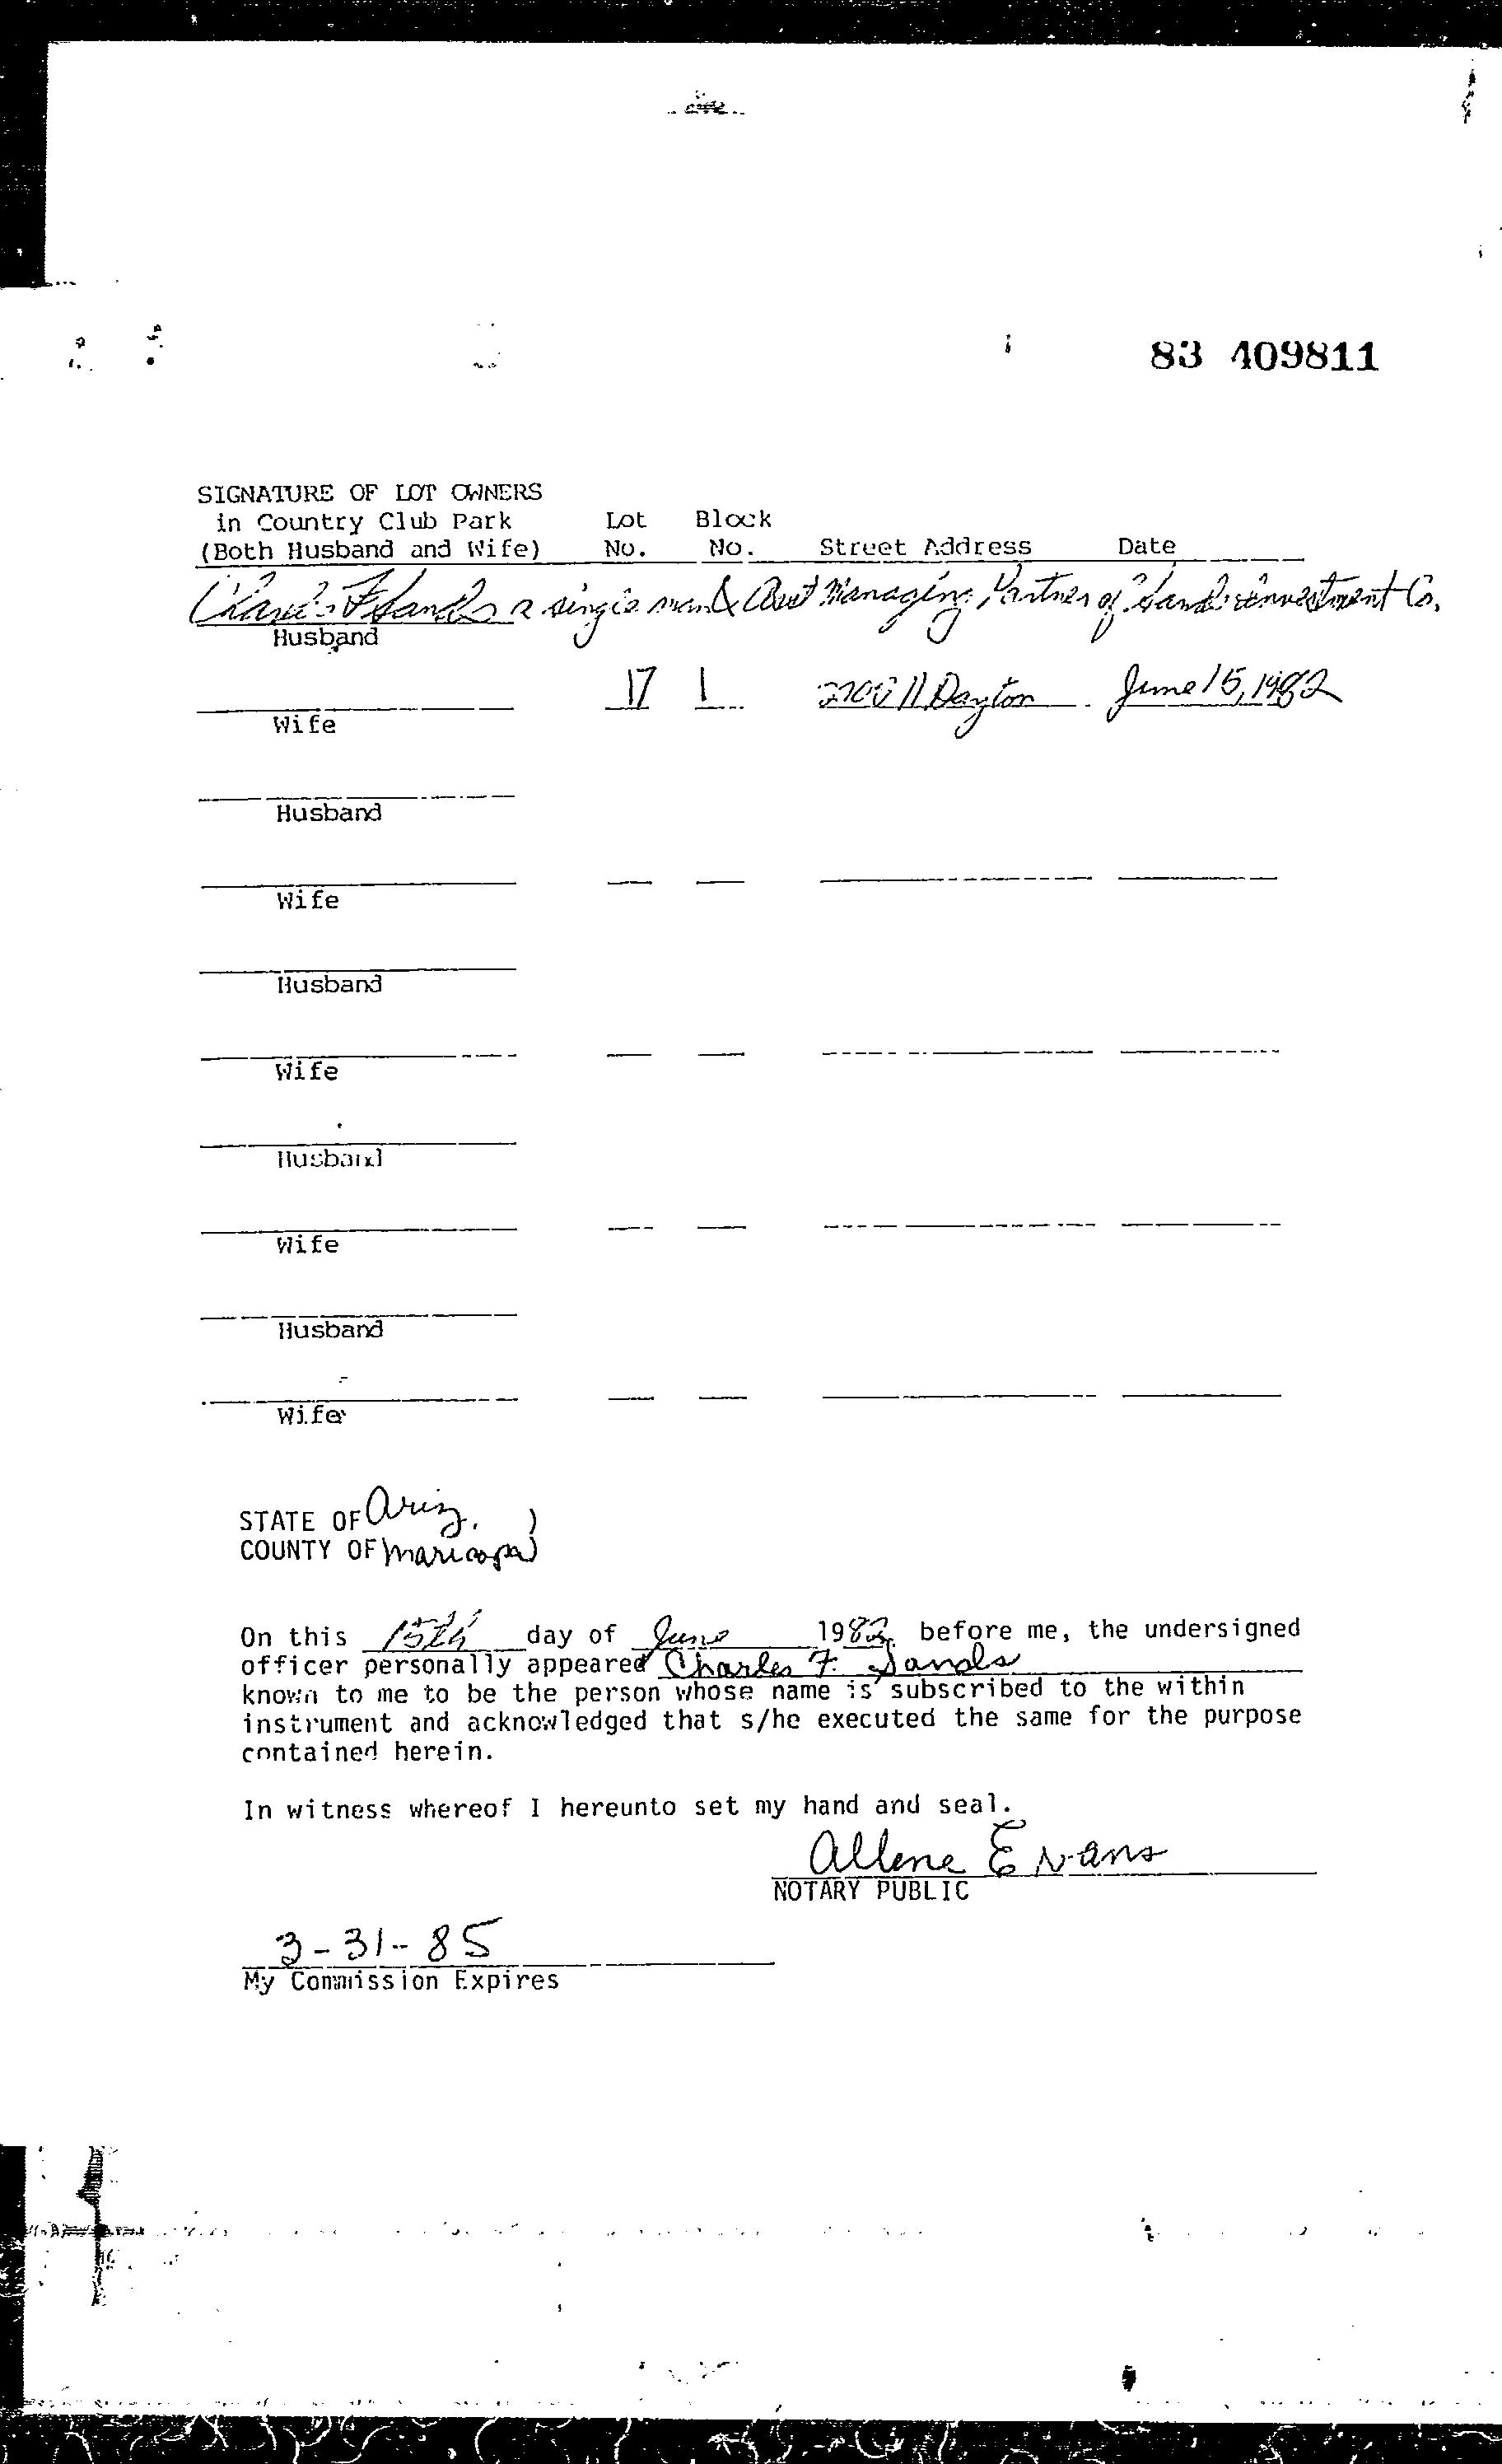 83 409811
SIGNATURE OF LOT OWNERS
in Country Club Park Lot Block
(Both Husband and Wife) No. No. Street Address Date
F Sands a single man & Managing Partner of Sands Investment Co.
Husband
17 1 Dayton June 15, 1982
Wife
Husband
Wife
Husband
Wife
Husband
Wife
Husband
Wife
STATE OF Ariz. )
COUNTY OF Maricopa)
On this 15th day of June 1982 before me, the undersigned
officer personally appeared Charles F. Sands
known to me to be the person whose name is subscribed to the within
instrument and acknowledged that s/he executed the same for the purpose
contained herein.
In witness whereof I hereunto set my hand and seal.
Allene Evans
NOTARY PUBLIC
3-31-85
My Commission Expires